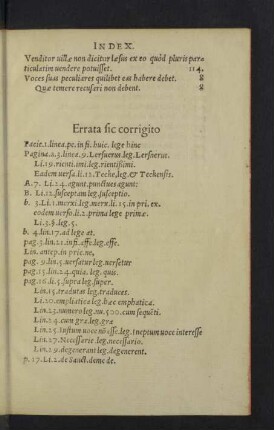 INDEX.
Venditor uictæ non dicitur læsus ex eo quòd pluris par
ticulatim uendere potuisset. 114.
Voces suas peculiares quilibet eas habere debet. 8
Quæ temere recusari non debent. 8
Errata sic corrigito
Facie.1.linea.pe.in fi.huic. lege hinc
Pagina.a.3.linea.9.Lersuerus leg.Lersnerus.
Li.19.rienti.imi.leg.rientissimi.
Eadem uersa.li.12.Teche,leg.& Techensis.
A.7. Li.24.egunt.punctues.egunt:
B. Li.12.susceptam leg.susceptio.
b. 3.Li.1.morxi.leg.merx.li.15.in pri. ex.
eodem uerso.li.2.prima lege primæ.
Li.3.§.leg.5.
b. 4.lin.17.ad lege at.
pag.3.lin.21.in fi.esse.leg.esse.
Lin.antep.in pric.ne,
pag.9.lin.5.uersatur leg.uersetur
pag.15.lin.24.quia.leg.quæ.
pag.16.li.5.supra leg.super.
Lin.15.tradutas leg.traduces.
Li.20.empliatica leg.hæc emphatica.
Lin.23.numero leg.nu.500.cum sequeti.
Lin.24.cum græ.leg.græ
Lin.25.Iustum uoce nõ esse.leg.Ineptum uoce interesse
Lin.27.Necessarie.leg.necessario.
Lin.29.degenerant leg.degenerent.
p.17.Li.2.de Sanct.deme de.